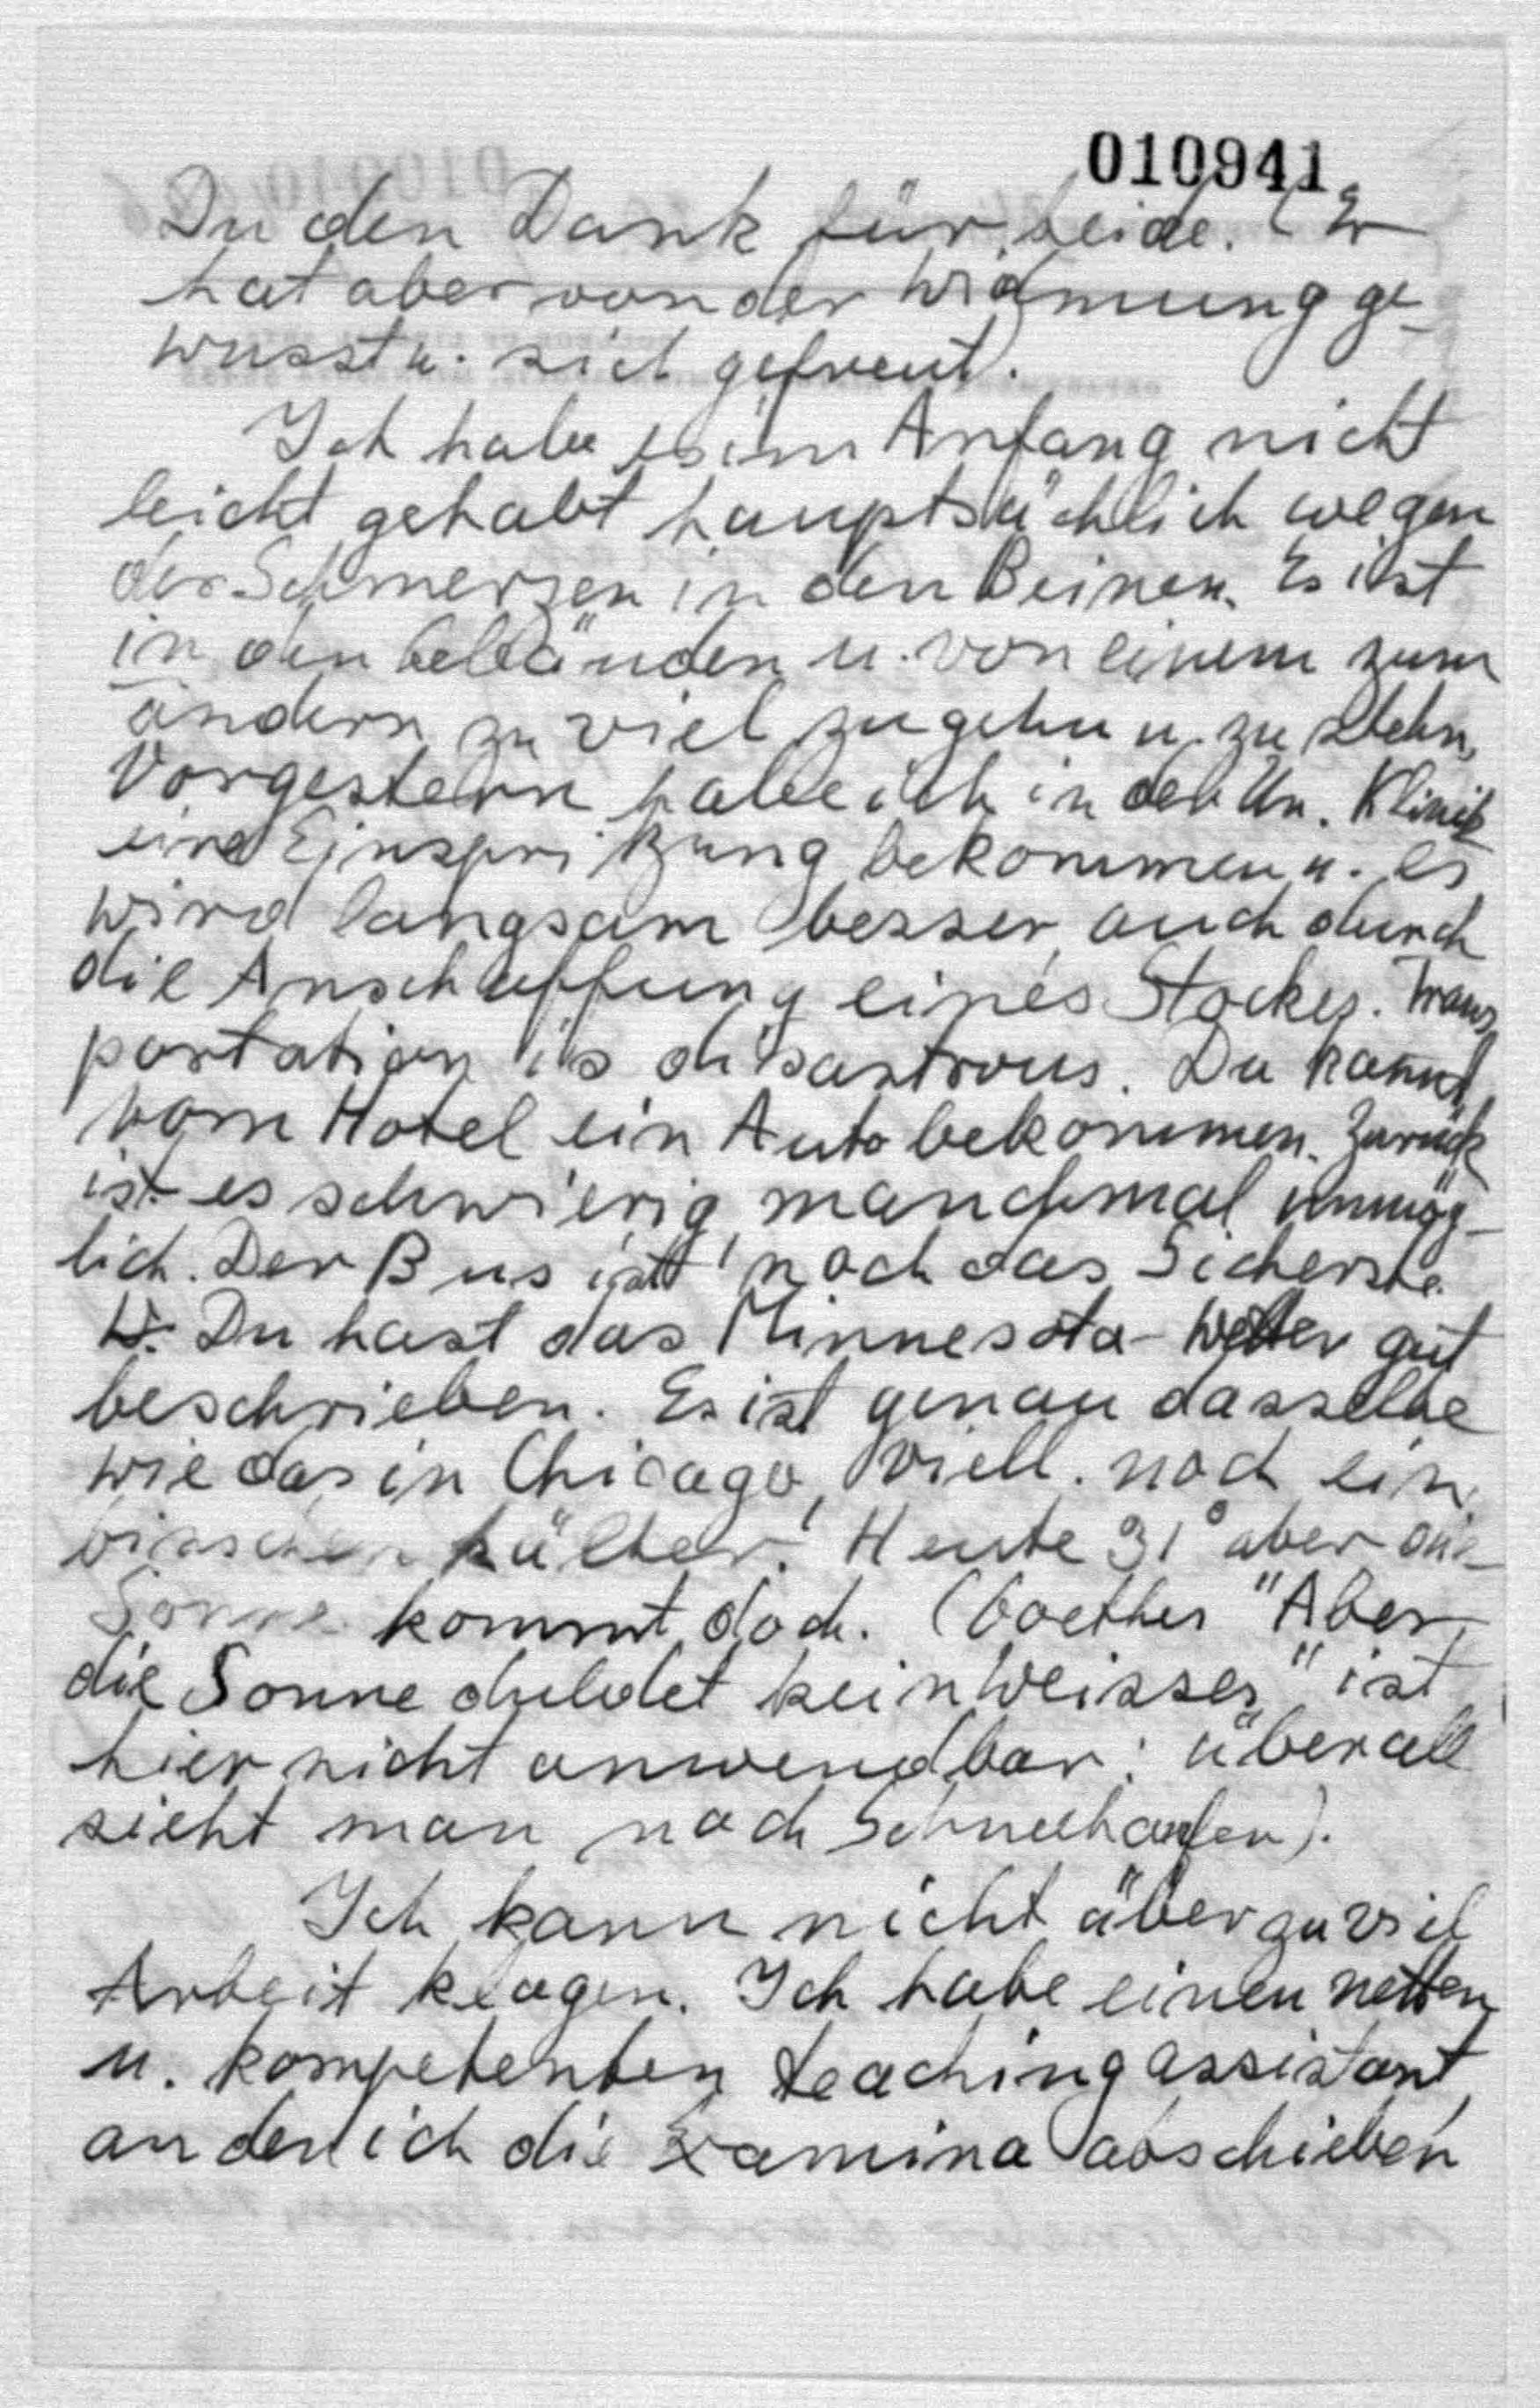 010941
Du den Dank für beide. (Er
hat aber von der Widmung ge-
wusst u. sich gefreut).
Ich habe es im Anfang nicht
leicht gehabt hauptsächlich wegen
der Schmerzen in den Beinen. Es ist
in den Gebäuden u. von einem zum
andern zu viel zu gehn u. zu stehn,
Vorgestern habe ich in der Un. Klinik
eine Einspritzung bekommen u. es
wird langsam besser, auch durch
die Anschaffung eines Stockes. Trans-
portation is disastrous. Du kannst
vom Hotel ein Auto bekommen. Zurück
ist es schwierig, manchmal unmög-
lich. Der Bus ist noch das Sicherste.
Du hast das Minnesota-Wetter gut
beschrieben. Es ist genau dasselbe
wie das in Chicago, viell. noch ein
bisschen kälter. Heute 31° aber die
Sonne kommt doch. (Goethes "Aber
die Sonne duldet kein Weisses" ist
hier nicht anwendbar: überall
sieht man noch Schneehaufen).
Ich kann nicht über zu viel
Arbeit klagen. Ich habe einen netten
u. kompetenten teaching assistant,
an den ich die Examina abschieben